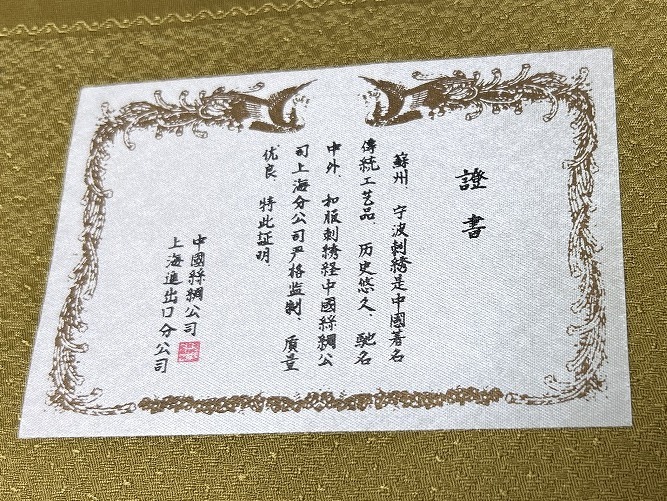 證書
蘇州、宁波刺綉是中國著名
傳統工艺品、历史悠久、馳名
中外、和服刺綉経中國絲綢公
司上海分公司严格监制、质量
优良、特此証明、
中國絲綢公司
上海進出口分公司